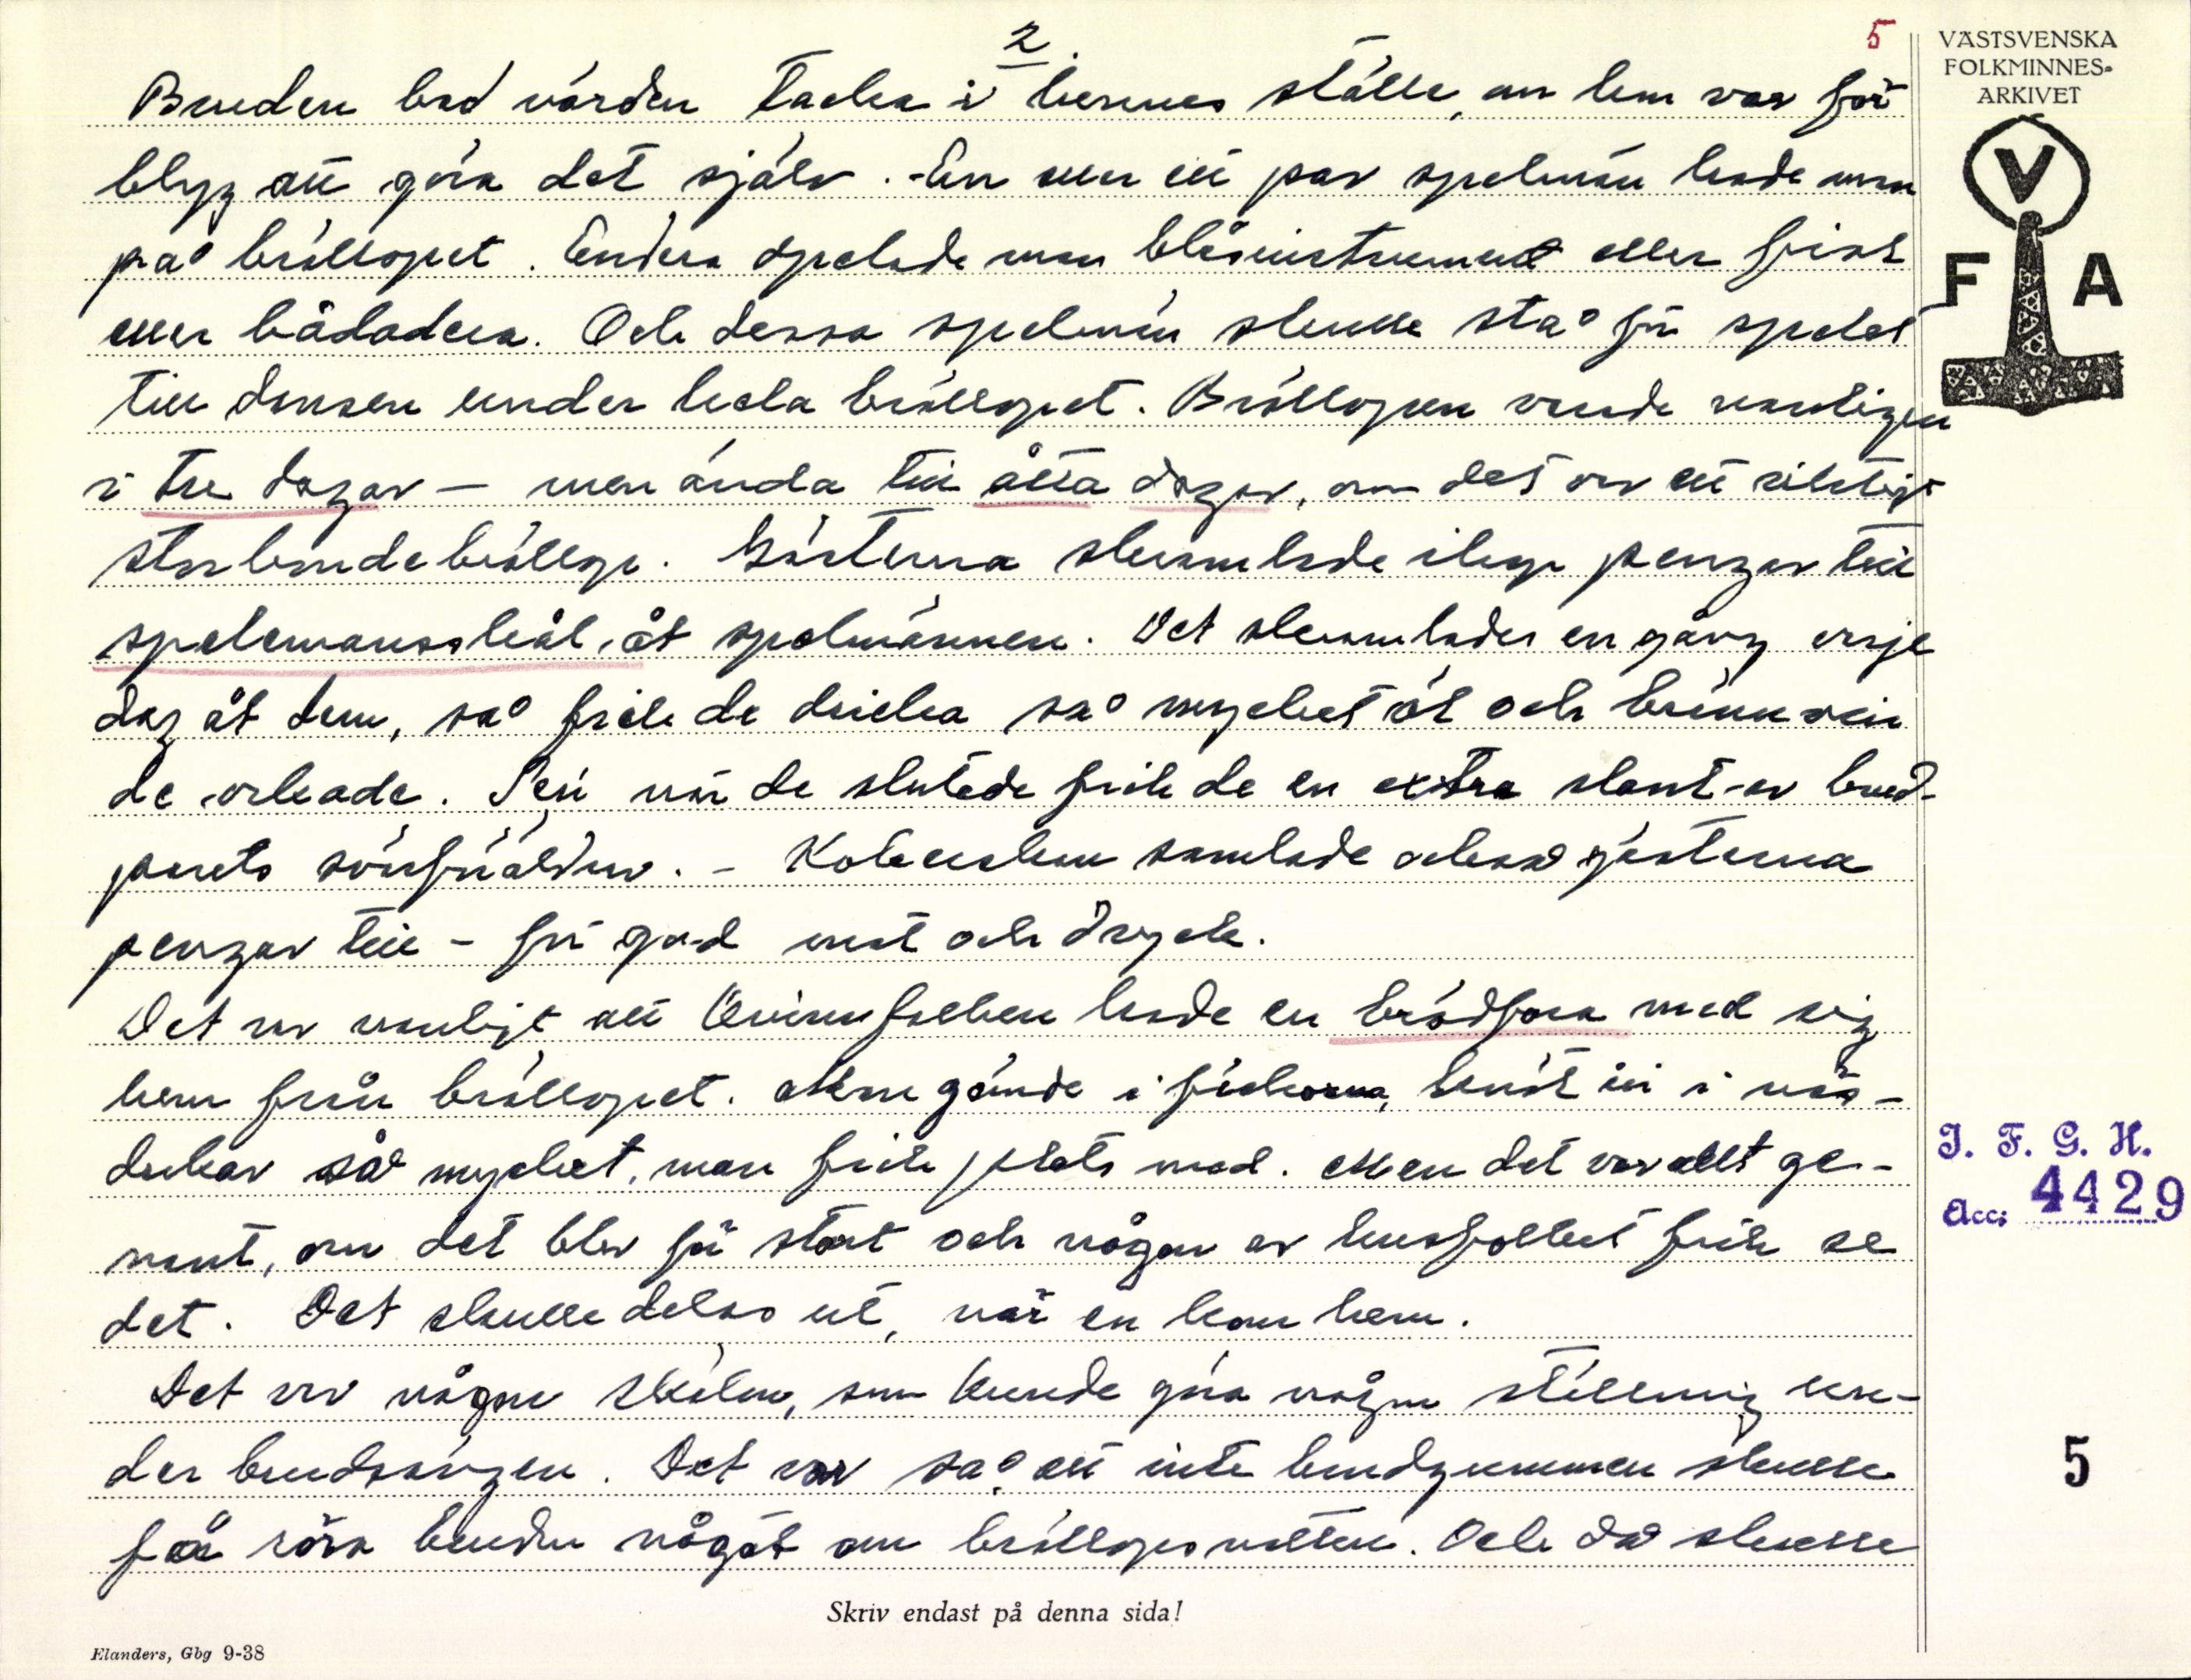 2.
5
VÄSTSVENSKA
FOLKMINNES-
ARKIVET
V
F A
Bruden bad värden tacka i hennes ställe, om hon var för
blyg att göra det själv. - En eller ett par spelmän hade man
på bröllopet. Endera spelade man blåsinstrument eller fiol
eller bådadera. Och dessa spelmän skulle stå för spelet
till dansen under hela bröllopet. Bröllopen varade vanligen
i tre dagar – men ända till åtta dagar, om det var ett riktigt
storbondebröllop. Gästerna skramlade ihop pengar till
spelemansskål åt spelmännen. Det skramlades en gång varje
dag åt dem, så fick de dricka så mycket öl och brännvin
de orkade. Sen när de slutade fick de en extra slant av brud-
parets föräldrar. - Kokerskan samlade också gästerna
pengar till - för god mat och dryck.
Det var vanligt att kvinnfolken hade en brödpåse med sig
hem från bröllopet. Man gömde i fickorna, knöt in i näs-
dukar så mycket, man fick plats med. Men det var allt ge-
nant, om det blev för stort och någon av husfolket fick se
det. Det skulle delas ut, när en kom hem.
Det var någon skälm, som kunde göra någon ställning un-
der brudsängen. Det var så, att inte brudgummen skulle
få röra bruden något om bröllopsnatten. Och då skulle
J. F. G. H.
Acc: 4429
5
Skriv endast på denna sida!
Elanders, Gbg 9-38